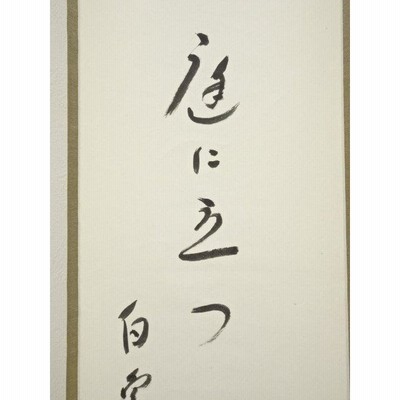 庭に立つ
白